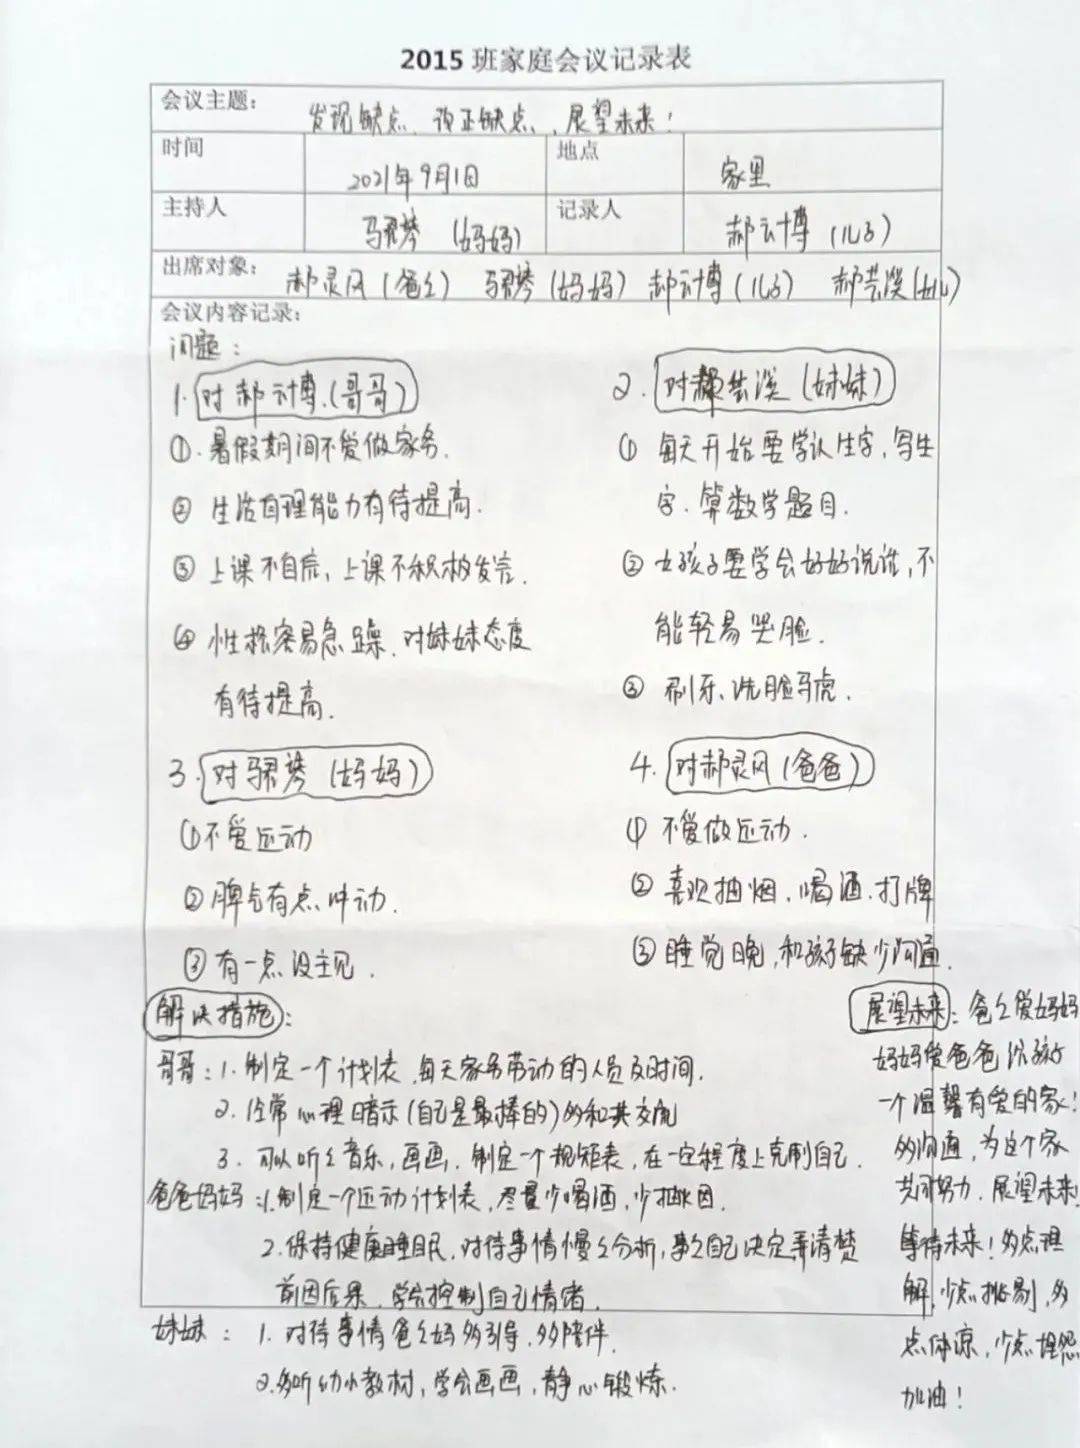 2015班家庭会议记录表
会议主题：发现缺点、改正缺点、展望未来！
时间 2021年9月1日 地点 家里
主持人 （妈妈） 记录人 郝云博（儿子）
出席对象：郝灵风（爸爸） （妈妈） 郝云博（儿子） 郝芸溪（女儿）
会议内容记录：
问题：
1.对郝云博.（哥哥）
①.暑假期间不爱做家务.
②生活自理能力有待提高.
③上课不自信，上课不积极发言.
④性格容易急躁.对妹妹态度
有待提高.
2.对郝芸溪（妹妹）
①每天开始要学认生字，写生
字.算数学题目.
②女孩子要学会好好说话，不
能轻易哭脸.
③刷牙、洗脸马虎.
3.对（妈妈）
①不爱运动
②脾气有点冲动.
③有一点没主见.
4.对郝灵风（爸爸）
①不爱做运动.
②喜欢抽烟.喝酒.打牌
③睡觉晚，和孩子缺少沟通.
解决措施：
哥哥：1.制定一个计划表.每天家务劳动的人员及时间.
2.经常心理暗示（自己是最棒的）多和其交流
3.可以听听音乐，画画.制定一个规矩表，在一定程度上克制自己.
爸爸妈妈：1.制定一个运动计划表，尽量少喝酒，少抽烟.
2.保持健康睡眠.对待事情慢慢分析，事事自己决定弄清楚
前因后果.学会控制自己情绪.
妹妹：1.对待事情爸爸妈多引导，多陪伴.
2.多听幼小教材，学会画画，静心锻炼.
展望未来：爸爸爱妈妈
妈妈爱爸爸 给孩子
一个温馨有爱的家！
多沟通，为这个家
共同努力.展望未来！
等待未来！多点理
解，少点挑剔，多
点体谅，少点埋怨
加油！